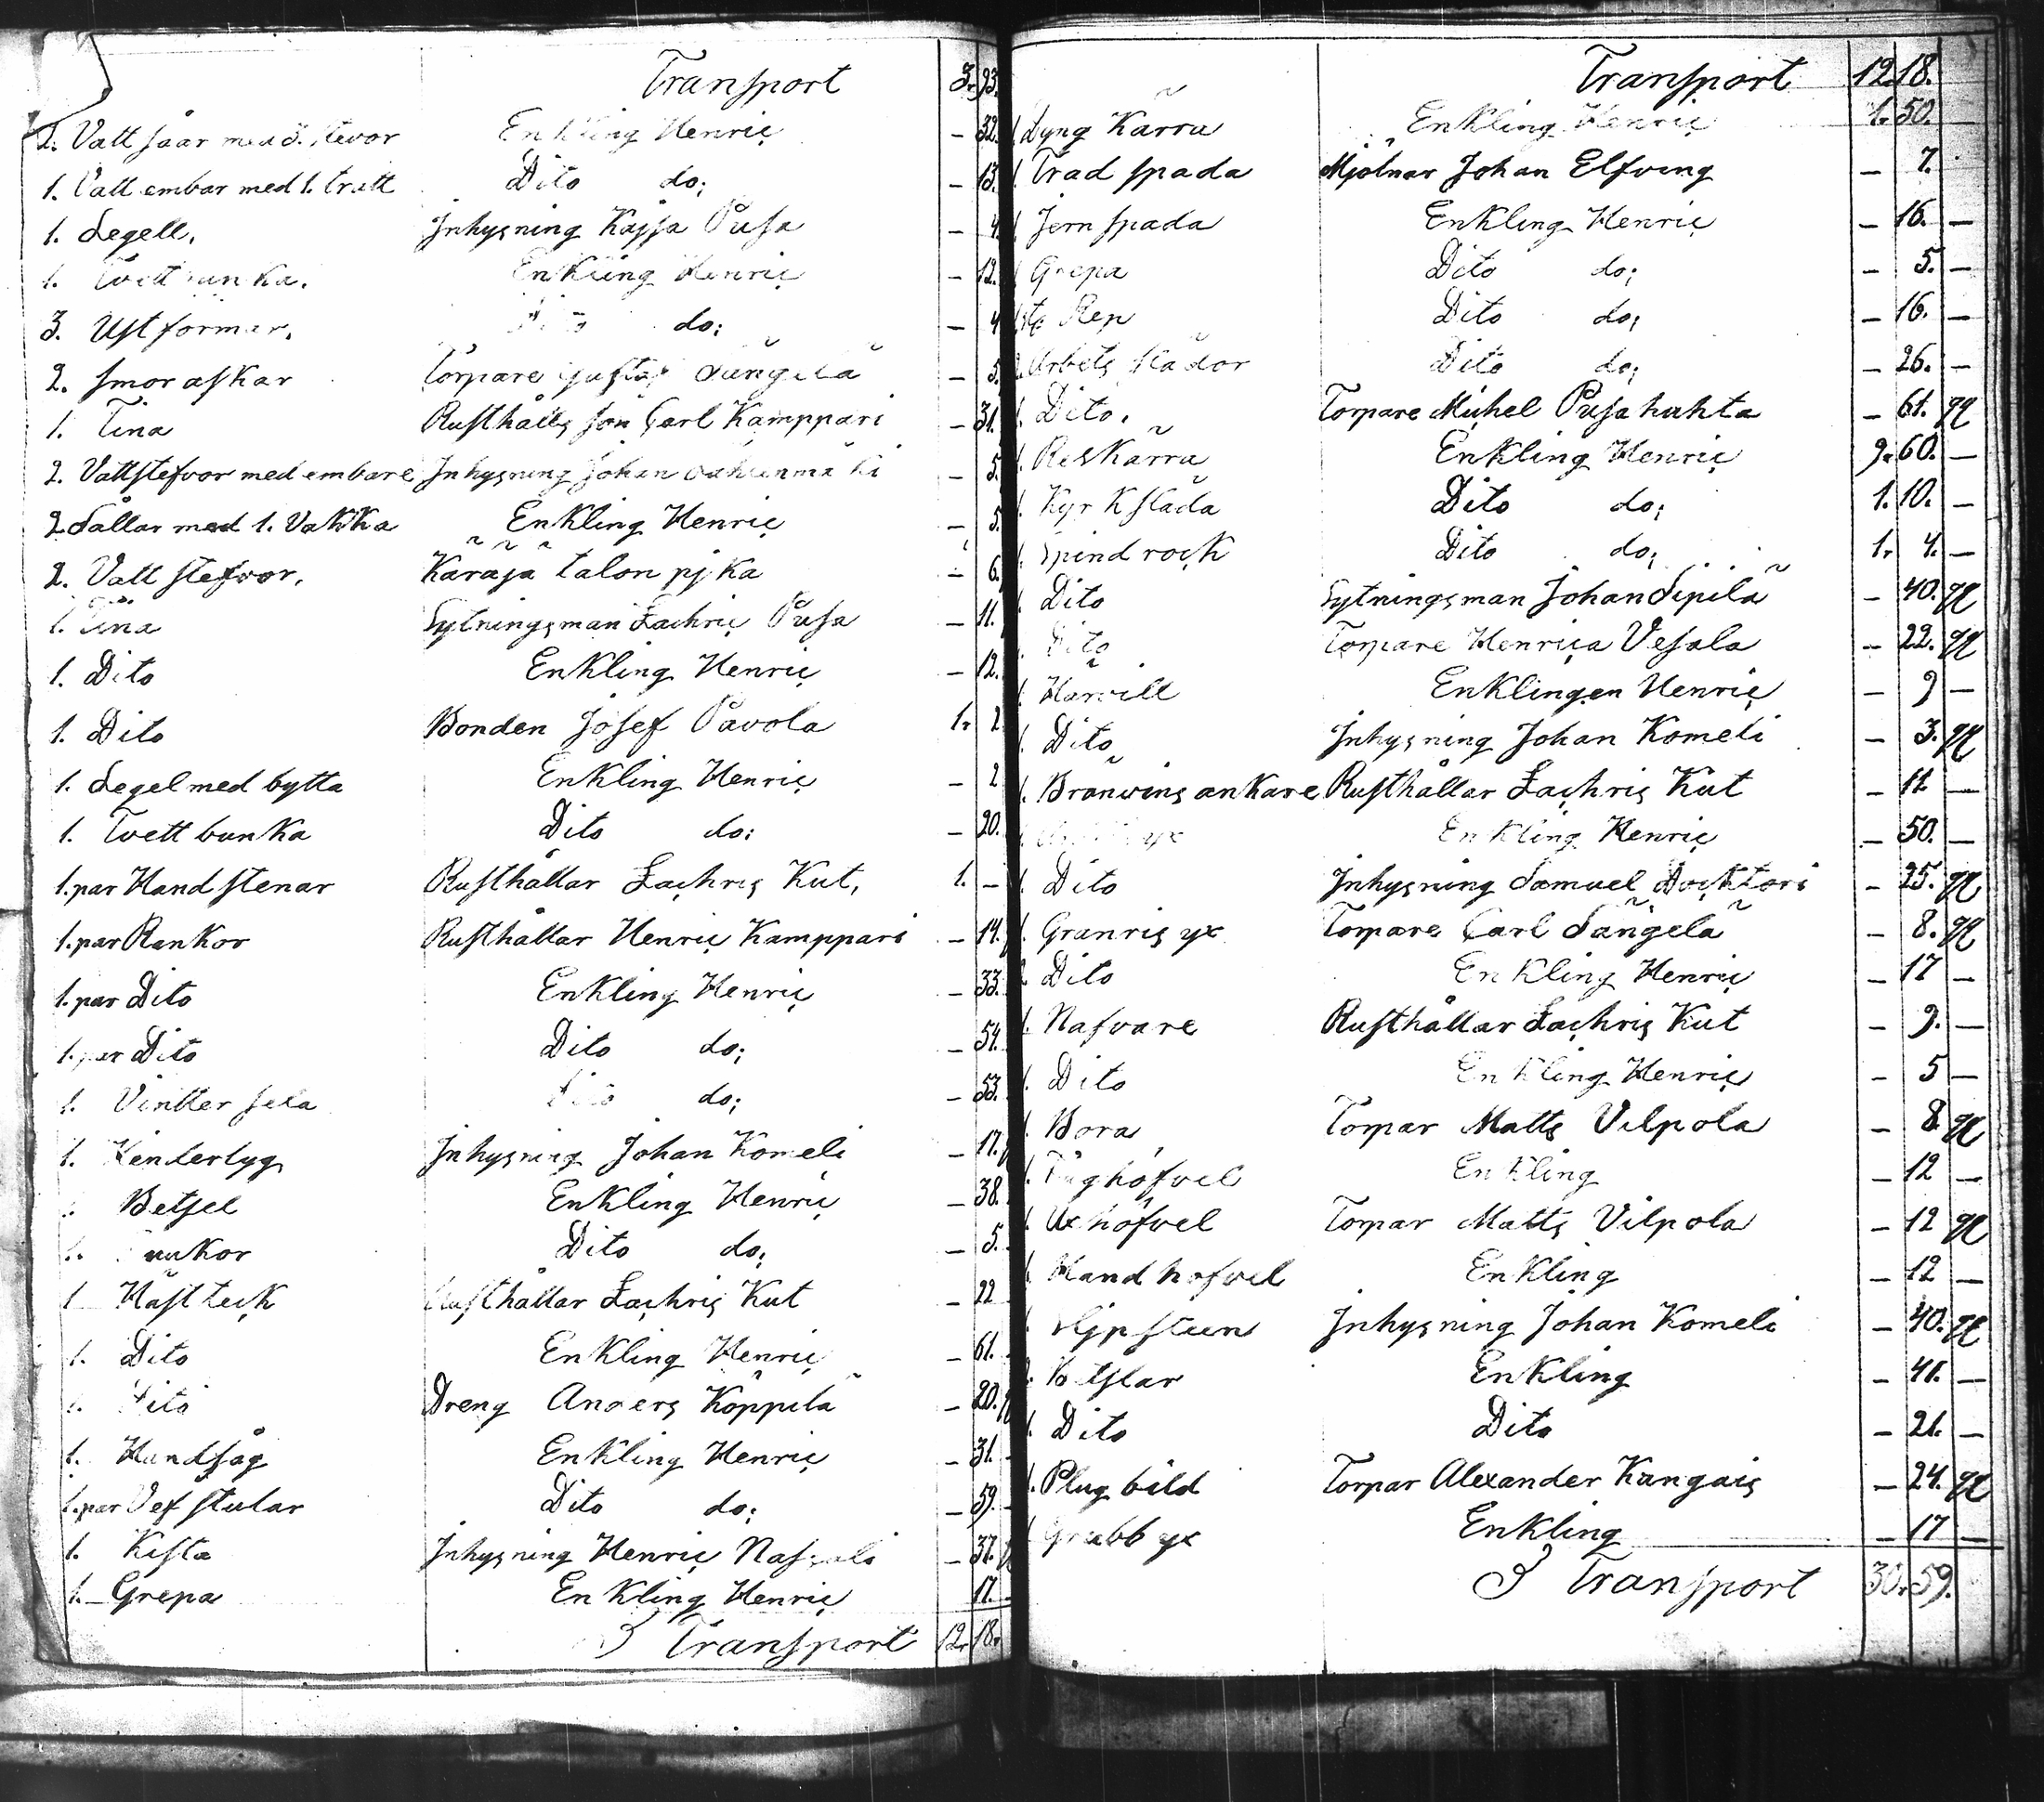 Transport 3. 93.
2. Vatt såar med 3. stevor Enkling Henric — 32.
1. Vatt embar med 1. tratt Dito do; — 13.
1. Legell. Inhysning Kajsa Pusa — 4.
1. Tvett bunka. Enkling Henric — 12.
3. Ust formar. Dito do; — 4
2. smor askar Torpare Gustaf Sängilä — 5.
1. Tina Rusthålls son Carl Kamppari — 31.
2. Vattstefvor med embare Inhysning Johan — 5.
2 Sållar med 1. Vakka Enkling Henric — 5.
2. Vatt stefvor. Käräjä talon pjka — 6.
1. Tina Sytningsman Zachric Pusa — 11.
1. Dito Enkling Henric — 12.
1. Dito Bonden Josef Påvola 1. 2
1. Legel med bytta Enkling Henric — 2
1. Tvett bunka Dito do: — 20.
1. par Hand stenar Rusthållar Zachris Kut, 1. —
1. par Rankor Rusthållar Henric Kamppari — 14.
1. par Dito Enkling Henric — 33.
1. par Dito Dito do; — 54.
1. Vintter sela Dito do; — 53.
1. Kindertyg Inhysning Johan Komeli — 17.
Betsel Enkling Henric — 38.
1. Dito do; — 5.
1 Hästteck Rusthållar Zachris Kut — 22
1. Dito Enkling Henric — 61.
1. Dito Dreng Anders Köppilä — 20.
1. Handsåg Enkling Henric — 31.
1. par Vef stular Dito do; — 59.
1. Kista Inhysning Henric — 37.
1. Grepa Enkling Henric 17.
Transport 12. 18.
Transport 12. 18.
1. Dyng Kärra Enkling Henric 1. 50. —
1. Trad spada Mjölnar Johan Elfving — 7.
1. Jern spada Enkling Henric — 16. —
1. Grepa Dito do; — 5. —
Rep Dito do; — 16. —
2 Arbets slädor Dito do; — 26. —
1. Dito. Torpare Michel Pusa huhta — 61. qq
1. Res Kärra Enkling Henric 9. 60. —
1. Kyrk släda Dito do; 1. 10. —
1. Spind rock Dito do; 1. 4. —
1. Dito Sytningsman Johan Sipilä — 40. qq
1. Dito Torpare Henrica Vesala — 22. qq
1. Härvill Enklingen Henric — 9 —
1. Dito Inhysning Johan Komeli — 3. qq
1. Bränvins ankare Rusthållar Zachris Kut — 11 —
yx Enkling Henric — 50. —
1. Dito Inhysning Samuel Docktori — 25. qq
1. Granris yx Torpare Carl Sängelä — 8. qq
Dito Enkling Henric — 17 —
1. Nafvare Rusthållar Zachris Kut — 9. —
1. Dito Enkling Henric — 5 —
1. Bora Torpar Matts Vilpola — 8. qq
1. höfvel Enkling — 12 —
1. höfvel Torpar Matts Vilpola — 12 qq
1. Hand hofvel Enkling — 12 —
1. Slipsteen Inhysning Johan Komeli — 40. qq
Betslar Enkling — 41. —
1. Dito Dito — 21. —
1. Plug bild Torpar Alexander Kangais — 24. qq
1. Grubb yx Enkling — 17 —
Transport 30. 59.